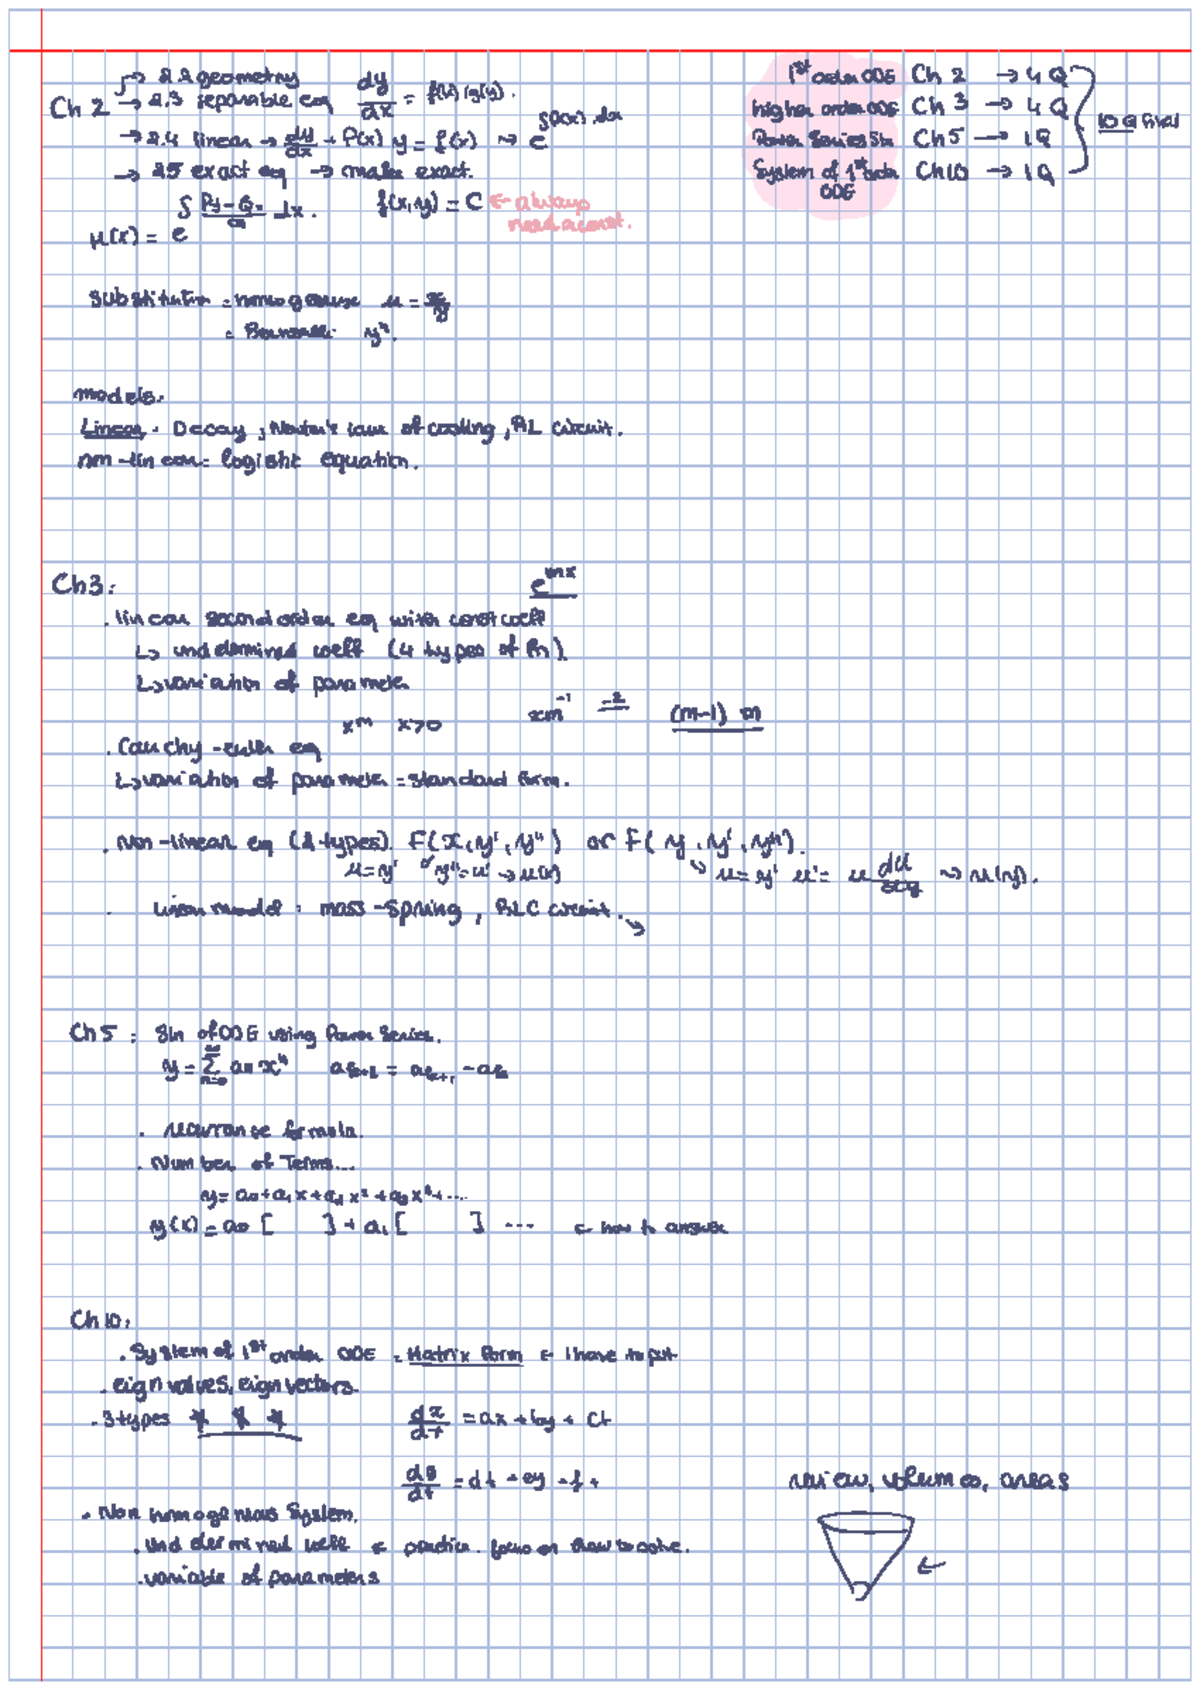 Ch 2 → 2.2 geometry
→ 2.3 separable eq dy/dx = f(x) g(y).
→ 2.4 linear → dy/dx + P(x) y = f(x) ⇝ e^∫P(x).dx
→ 2.5 exact eq → make exact.
μ(x) = e^∫ (Py - Qx)/Q dx. f(x,y) = C ← always need a const.
1st order ODE Ch 2 → 4 Q
higher order ODE Ch 3 → 4 Q
Power Series Sln Ch 5 → 1 Q
System of 1st order ODE Ch 10 → 1 Q
10 Q final
substitution = homogeneous u =
= Bernoulli y
models.
Linear. Decay, Newton's law of cooling, RL circuit.
non-linear = logistic equation.
Ch 3:
e^mx
. linear second order eq with const coeff
↳ undetermined coeff (4 types of fn).
↳ variation of parameter
x^m x>0 xm^-1 -2 (m-1) m
. Cauchy-euler eq
↳ variation of parameter = standard form.
. Non-linear eq (2 types). F(x, y', y'') or F(y, y', y'').
u=y' y''=u' → u(x) u=y' u'= u du/dy ⇝ u(y).
. linear model: mass-spring, RLC circuit.
Ch 5 : Sln of ODE using Power Series.
y = ∑ n=0 ∞ an x^n ak+2 = ak+1 - ak
. rearrange formula.
. Number of Terms...
y = a0 + a1 x + a2 x² + a3 x³ + ....
y(x) = a0 [ ] + a1 [ ] ... ← how to answer
Ch 10:
. System of 1st order ODE = Matrix form ← I have to put
. eign values, eign vectors.
. 3 types * * *
dx/dt = ax + by + ct
= dt + ey + f t
. Non homogenious System.
. Und dermined coeff ← practice. focus on how to solve.
. variable of parameters
review, volumes, areas